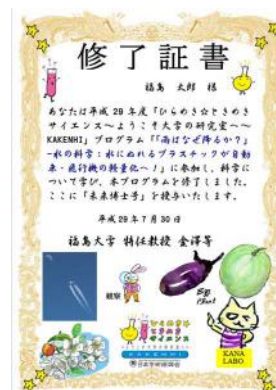 修了証書
福島 太郎 様
あなたは平成 29 年度「ひらめき☆ときめき
サイエンス～ようこそ大学の研究室へ～
KAKENHI」プログラム「「雨はなぜ降るか？」
-水の科学：水にぬれるプラスチックが自動
車・飛行機の軽量化へ！」に参加し、科学に
ついて学び、本プログラムを修了しました。
ここに「未来博士号」を授与いたします。
平成29年7月30日
福島大学 特任教授 金澤等
観察
ひらめき☆
ときめき
サイエンス
KAKENHI
日本学術振興会
KANA
LABO